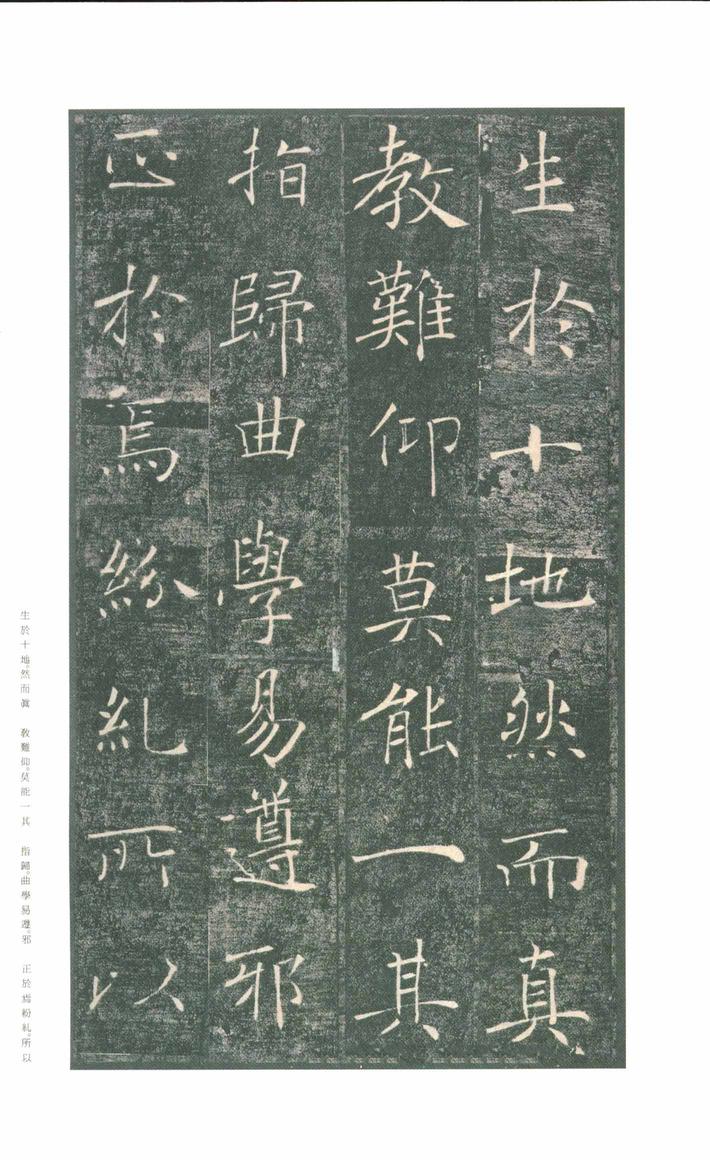 生於十地然而真
教難仰莫能一其
指歸曲學易遵邪
正於焉紛糺所以
生於十地。然而眞　教難仰。莫能一其　指歸。曲學易遵。邪　正於焉紛糺。所以